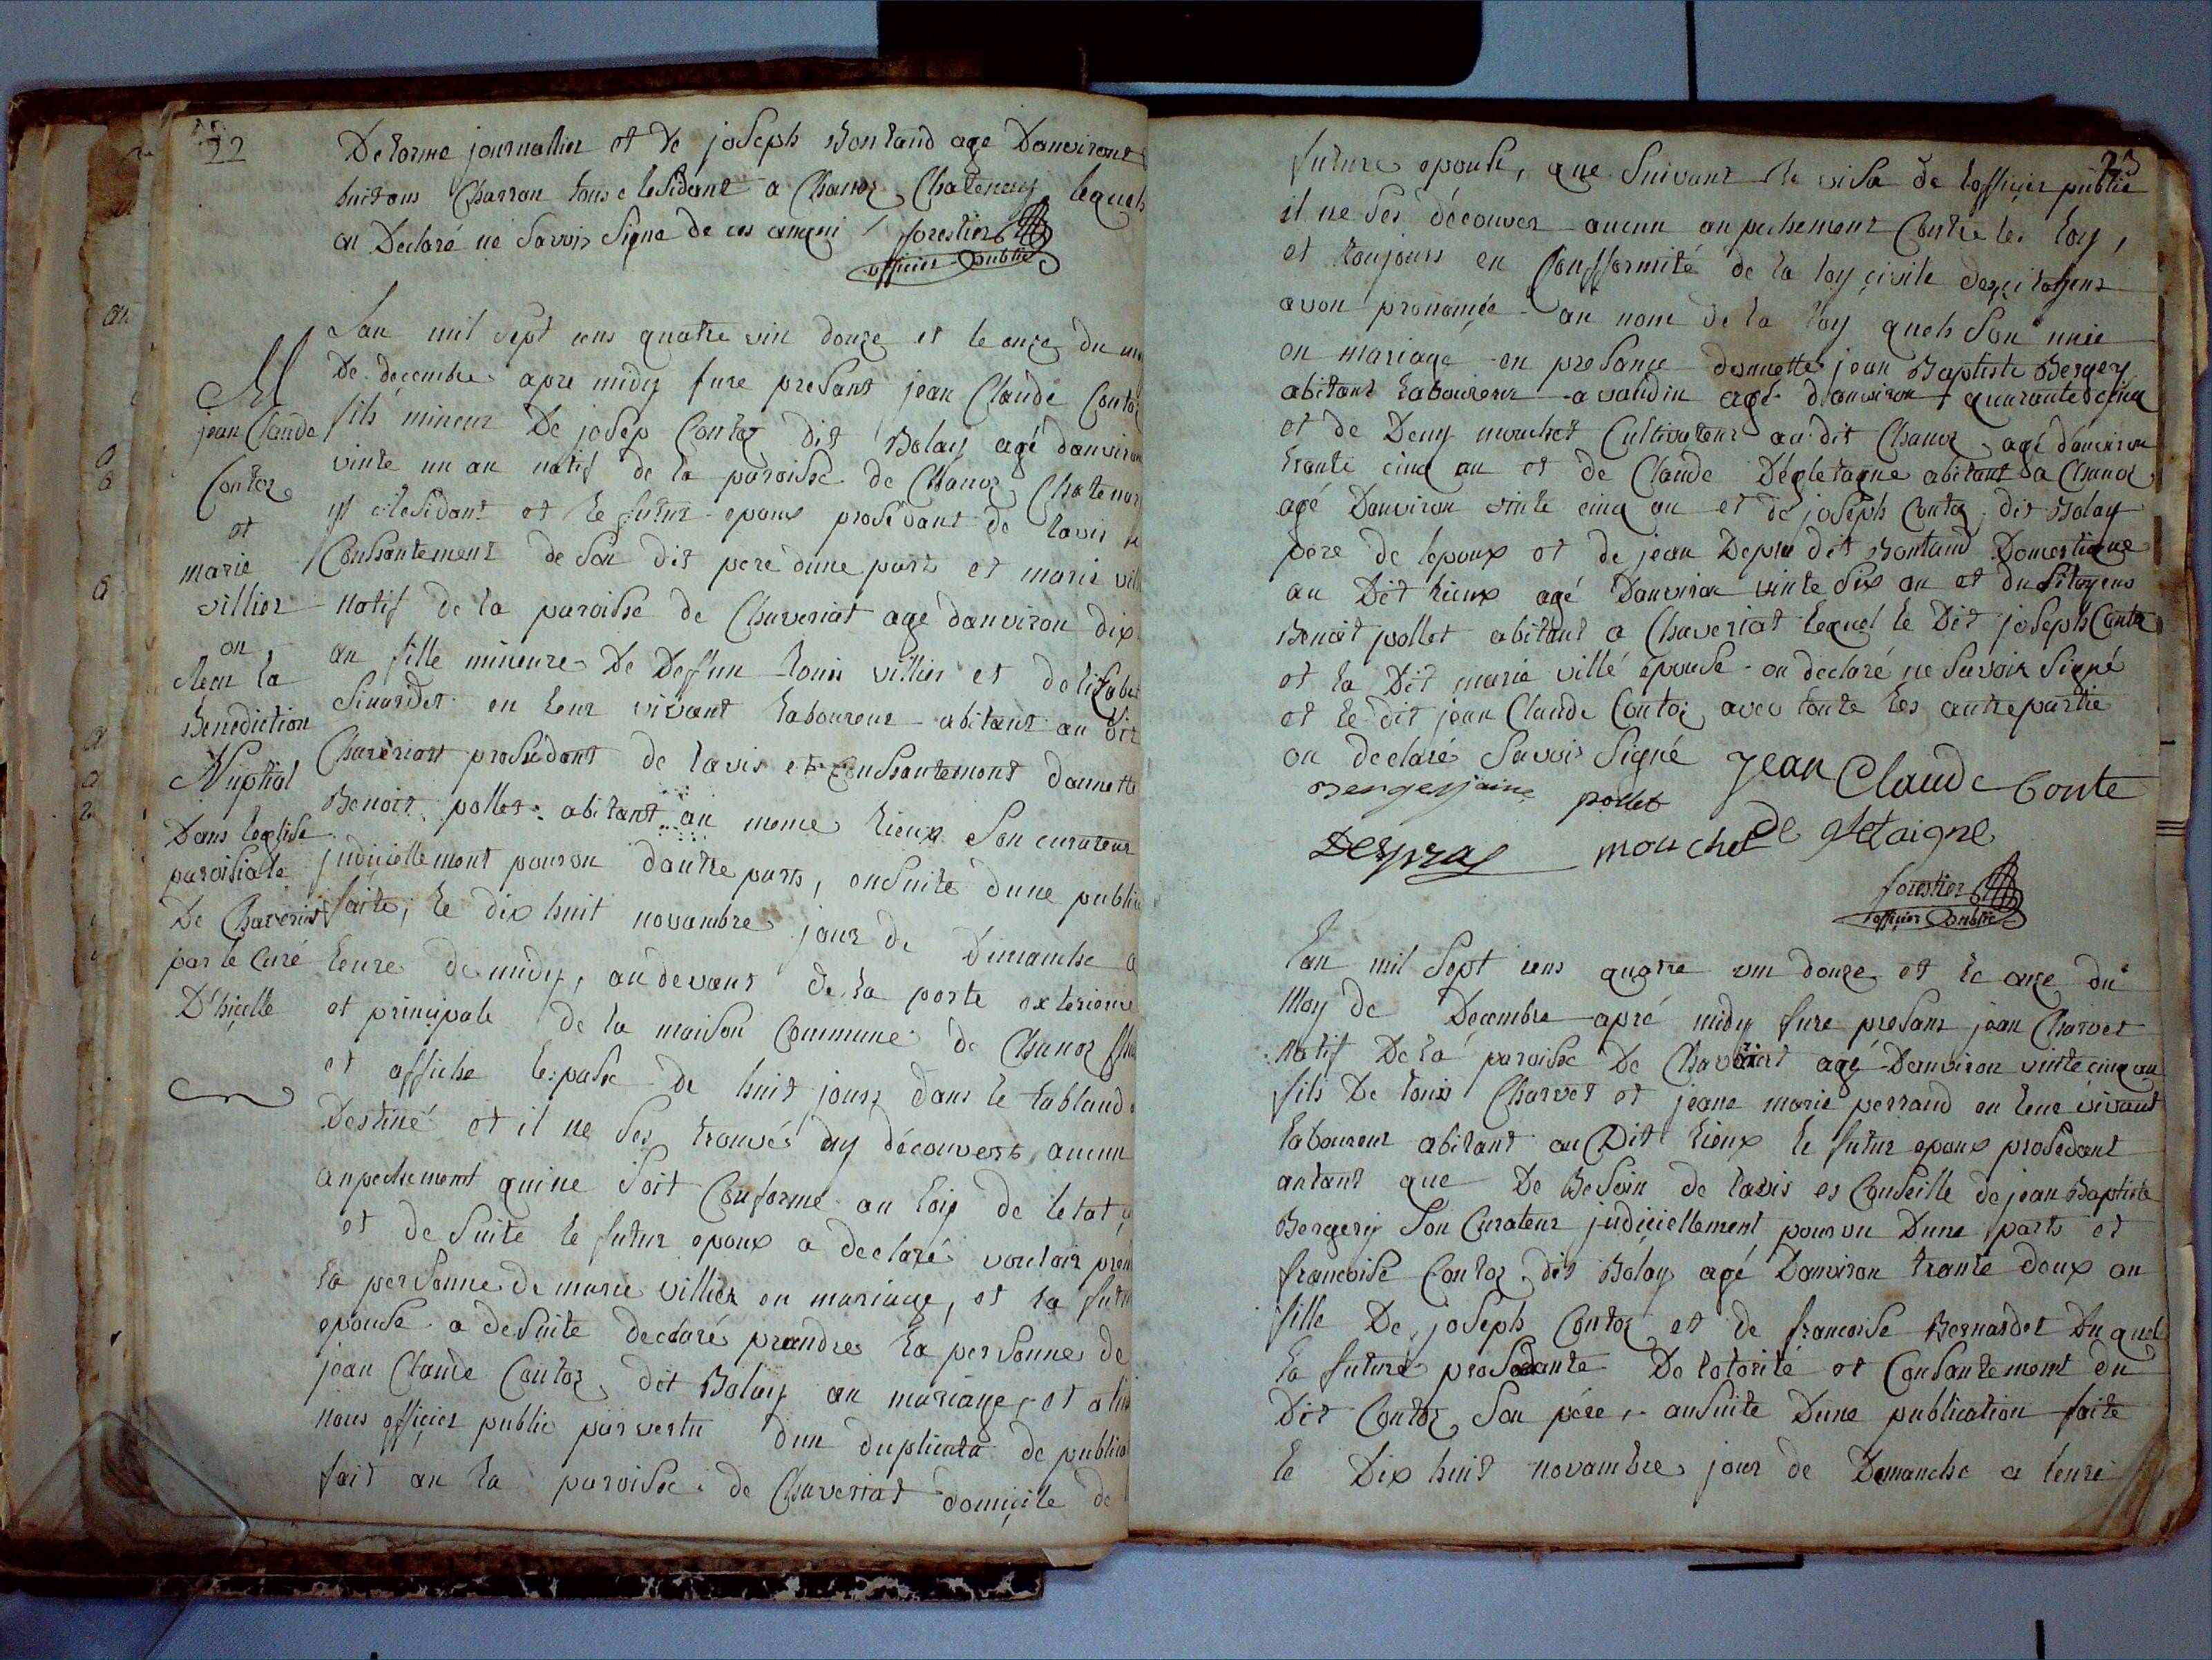 22
Delorme journallier et de joSeph Montand age Danviront
huit ans Charron tous réSidant a Chanoz Chatenay lequels
on Declaré ne Savoir Signe de ces anqui forestier
officier public
Lan mil sept cens quatre vin douze et le onze du
De decembre apre midy fure preSant jean Claude Contoz
fils mineur De joSep Contoz dit Balay agé danviron
vinte un an natif de la paroiSse de Chanoz Chatenay
y réSidant et le futur epoux proSédant de lavis
ConSantement de Son dit pere dune part et marie
natif de la paroiSse de Chaveriat agé danviron dix
an fille mineure De Deffun louis villier et deliSabet
Sinardet en leur vivant laboureur abitant au dit
Chaveriat proSédant de lavis et ConSantement dannette
Benoit pollet abitant au meme lieux Son curateur
judiciellement pourvu dautre parts, enSuite dune
faite, le dix huit novambre jour de Dimanche a
leure de midy, au devant de la porte exterieure
et principale de la maiSon Commune de Chanoz
et affiche lespaSe de huit jours dans le tablaud
Destiné et il ne Ses trouvés ny découvert aucun
anpechement qui ne Soit Conforme au loix de letat
et de Suite le futur epoux a declaré vouloir
la perSonne de marie villier en mariage, et la
epouSe a deSuite declaré prandre la perSonne de
jean Claude Contoz dit Balay an mariage, et
nous officier public par vertu dun duplicata de
fait an la paroiSse de Chaveriat domicile de
M
jean Claude
Contoz
et
marie
villier
on
Reçu la
Benediction
Nuptial
Dans leglise
paroisiale
De Chaveriat
par le Curé
D'hicelle
23
future epouSe, que Suivant le viSa de lofficier public
il ne Ses découver aucun anpechement Contre les loy,
et toujours en Confformité de la loy civile des citoyens
avon pronomée au nom de la loy quels Son unie
en mariage en preSance dannette jean Baptiste Bergery
abitant laboureur a vandin agé danviron quarantecinq
et de Deny mouchet Cultivateur au dit Chanoz agé danviron
trante cinq an et de Claude Dégletagne abitant a Chanoz
agé Danviron vinte cinq an et de joSeph Contoz dit Balay
père de lepoux et de jean Depra dit Montand Domestique
au Dit lieux agé Danviron vinte Six an et du Sitoyens
Benoit pollet abitant a Chaveriat lequel le Dit joSeph Contoz
et la Dit marie villé épouSe on declaré ne Savoir Signé
et le dit jean Claude Contoz avec toute les autre partie
on declaré Savoir Signé Jean Claude Conte
pollet
Despras mouchet de gletaigne
forestier
officier public
lan mil Sept cens quatre vin douze et le onze du
Moy de Decembre apré midy fure preSant jean Charvet
natif De la paroiSse De Chaveriat agé Danviron vinte cinq an
fils De louis Charvet et jeane marie perraud en leur vivant
laboureur abitant au Dit lieux le futur epoux proSédant
antant que De BeSoin de lavis es ConSeille de jean Baptiste
Bergery Son Curateur judiciellement pourvu Dune parts et
francoiSe Contoz dit Balay agé Danviron trante deux an
fille De joSeph Contoz et de francoiSe Bernardet Du quel
la future proSedante De lotorité et ConSantement du
Dit Contoz Son père, anSuite Dune publication faite
le Dix huit novambre jour de Dimanche a leure